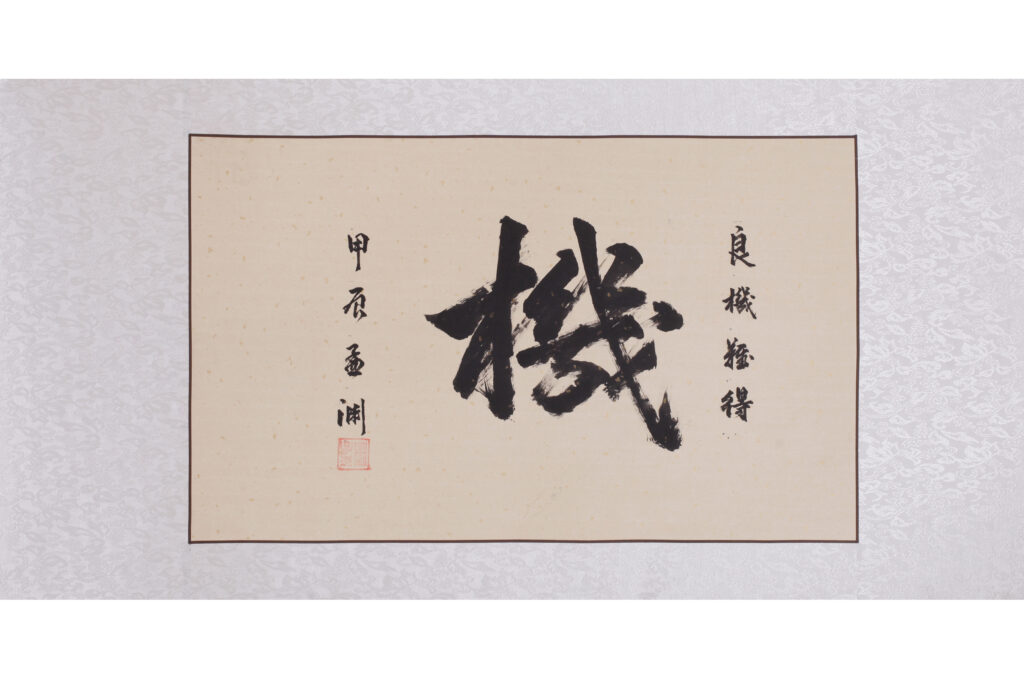 良機難得
機
甲辰孟渊